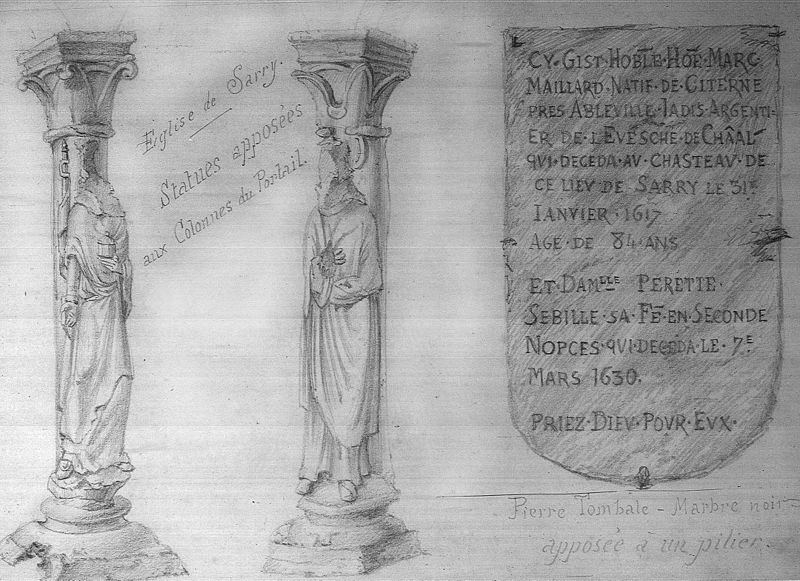 Église de Sarry.
Statues apposées
aux Colonnes du Portail.
CY·GIST·HOBLE·HOE·MARC
MAILLARD·NATIF·DE·CITERNE
PRES·ABLEVILLE·IADIS·ARGENTI-
ER·DE·L'EVESCHE·DE·CHÂAL-
QVI·DECEDA·AV·CHASTEAV·DE
CE LIEV DE SARRY LE 31E
IANVIER·1617
AGE·DE 84·ANS
ET·DAMLLE PERETTE·
SEBILLE·SA·FE·EN·SECONDE
NOPCES·QVI·DECEDA·LE·7E
MARS 1630.
PRIEZ·DIEV·POVR·EVX·
Pierre Tombale - Marbre noir
apposée à un pilier.